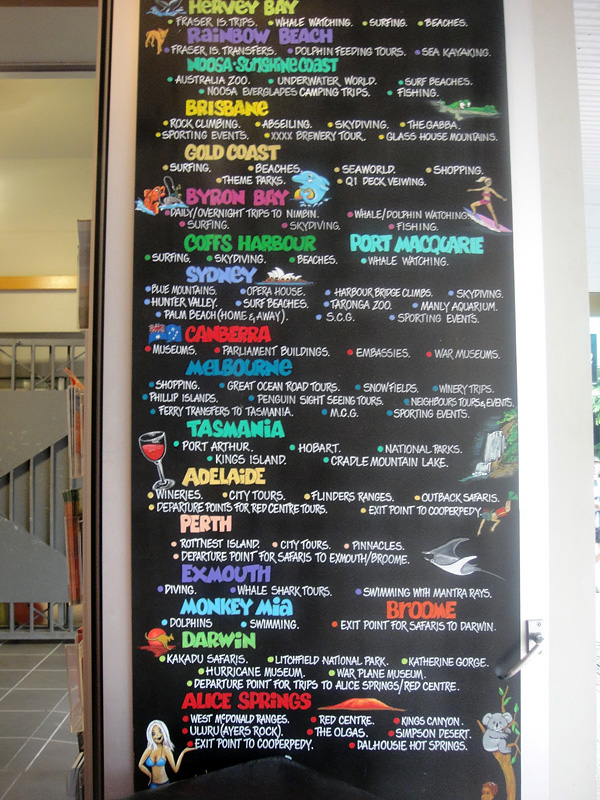 HERVEY BAY
FRASER IS. TRIPS. WHALE WATCHING. SURFING. BEACHES.
RAINBOW BEACH
FRASER IS. TRANSFERS. DOLPHIN FEEDING TOURS. SEA KAYAKING.
NOOSA-SUNSHINE COAST
AUSTRALIA ZOO. UNDERWATER WORLD. SURF BEACHES.
NOOSA EVERGLADES CAMPING TRIPS. FISHING.
BRISBANE
ROCK CLIMBING. ABSEILING. SKYDIVING. THE GABBA.
SPORTING EVENTS. XXXX BREWERY TOUR. GLASS HOUSE MOUNTAINS.
GOLD COAST
SURFING. BEACHES. SEAWORLD. SHOPPING.
THEME PARKS. Q1 DECK VEIWING.
BYRON BAY
DAILY/OVERNIGHT TRIPS TO NIMBIN. WHALE/DOLPHIN WATCHING
SURFING. SKYDIVING. FISHING.
COFFS HARBOUR PORT MACQUARIE
SURFING. SKYDIVING. BEACHES. WHALE WATCHING.
SYDNEY
BLUE MOUNTAINS. OPERA HOUSE. HARBOUR BRIDGE CLIMBS. SKYDIVING.
HUNTER VALLEY. SURF BEACHES. TARONGA ZOO. MANLY AQUARIUM.
PALM BEACH (HOME & AWAY). S.C.G. SPORTING EVENTS.
CANBERRA
MUSEUMS. PARLIAMENT BUILDINGS. EMBASSIES. WAR MUSEUMS.
MELBOURNE
SHOPPING. GREAT OCEAN ROAD TOURS. SNOWFIELDS. WINERY TRIPS.
PHILLIP ISLANDS. PENGUIN SIGHT SEEING TOURS. NEIGHBOURS TOURS & EVENTS.
FERRY TRANSFERS TO TASMANIA. M.C.G. SPORTING EVENTS.
TASMANIA
PORT ARTHUR. HOBART. NATIONAL PARKS.
KINGS ISLAND. CRADLE MOUNTAIN LAKE.
ADELAIDE
WINERIES. CITY TOURS. FLINDERS RANGES. OUTBACK SAFARIS.
DEPARTURE POINTS FOR RED CENTRE TOURS. EXIT POINT TO COOPERPEDY.
PERTH
ROTTNEST ISLAND. CITY TOURS. PINNACLES.
DEPARTURE POINT FOR SAFARIS TO EXMOUTH/BROOME.
EXMOUTH
DIVING. WHALE SHARK TOURS. SWIMMING WITH MANTRA RAYS.
MONKEY MIA BROOME
DOLPHINS SWIMMING. EXIT POINT FOR SAFARIS TO DARWIN.
DARWIN
KAKADU SAFARIS. LITCHFIELD NATIONAL PARK. KATHERINE GORGE.
HURRICANE MUSEUM. WAR PLANE MUSEUM.
DEPARTURE POINT FOR TRIPS TO ALICE SPRINGS/RED CENTRE.
ALICE SPRINGS
WEST McDONALD RANGES. RED CENTRE. KINGS CANYON.
ULURU (AYERS ROCK). THE OLGAS. SIMPSON DESERT.
EXIT POINT TO COOPERPEDY. DALHOUSIE HOT SPRINGS.